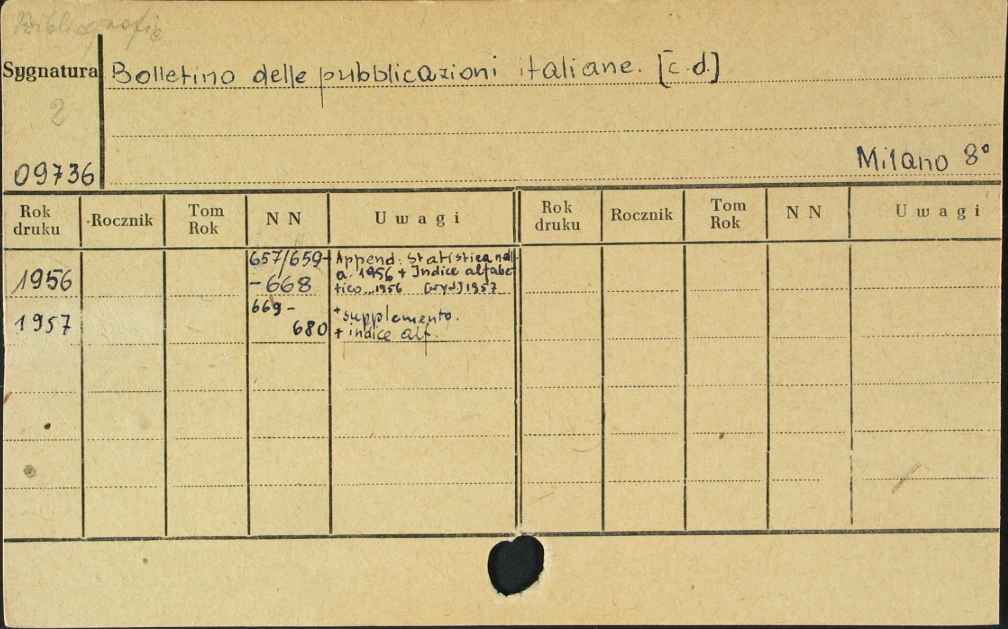 Bibliografie
Sygnatura Bolletino delle pubblicazioni italiane. [c.d.]
2
09736 Milano 8°
Rok druku Rocznik Tom Rok NN Uwagi Rok druku Rocznik Tom Rok NN Uwagi
1956 657/659- -668 Append: Statistica nell a. 1956 + Indice alfabe tico 1956 [wyd] 1957
1957 669- 680 + supplemento. + indice alf.